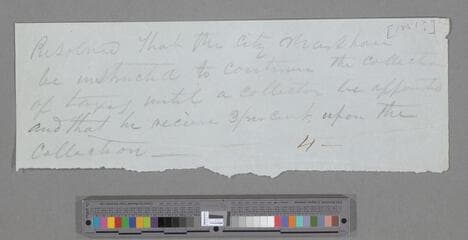 [1851?]
Resolved That the City Marshall
be instructed to continue the collection
of taxes until a collector be appointed
and that he recieve 3 per cent upon the
Collection —
4 —